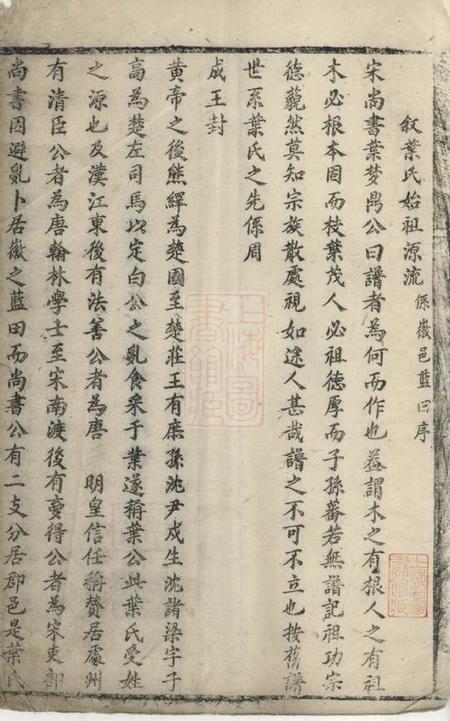 叙葉氏始祖源流 係徽邑藍田序
宋尚書葉梦鼎公曰譜者為何而作也葢謂木之有根人之有祖
木必根本固而枝葉茂人必祖德厚而子孫蕃若無譜記祖功宗
德藐然莫知宗族散處視如途人甚哉譜之不可不立也按舊譜
世系葉氏之先係周
成王封
黄帝之後熊繹為楚國至楚莊王有庶孫沈尹戍生沈諸梁字子
高為楚左司馬以定白公之亂食采于葉遂稱葉公此葉氏受姓
之源也及漢江東後有法善公者為唐 明皇信任稱賛居處州
有清臣公者為唐翰林學士至宋南渡後有夢得公者為宋吏部
尚書因避亂卜居徽之藍田而尚書公有二支分居郡邑是葉氏
上海圖書館藏